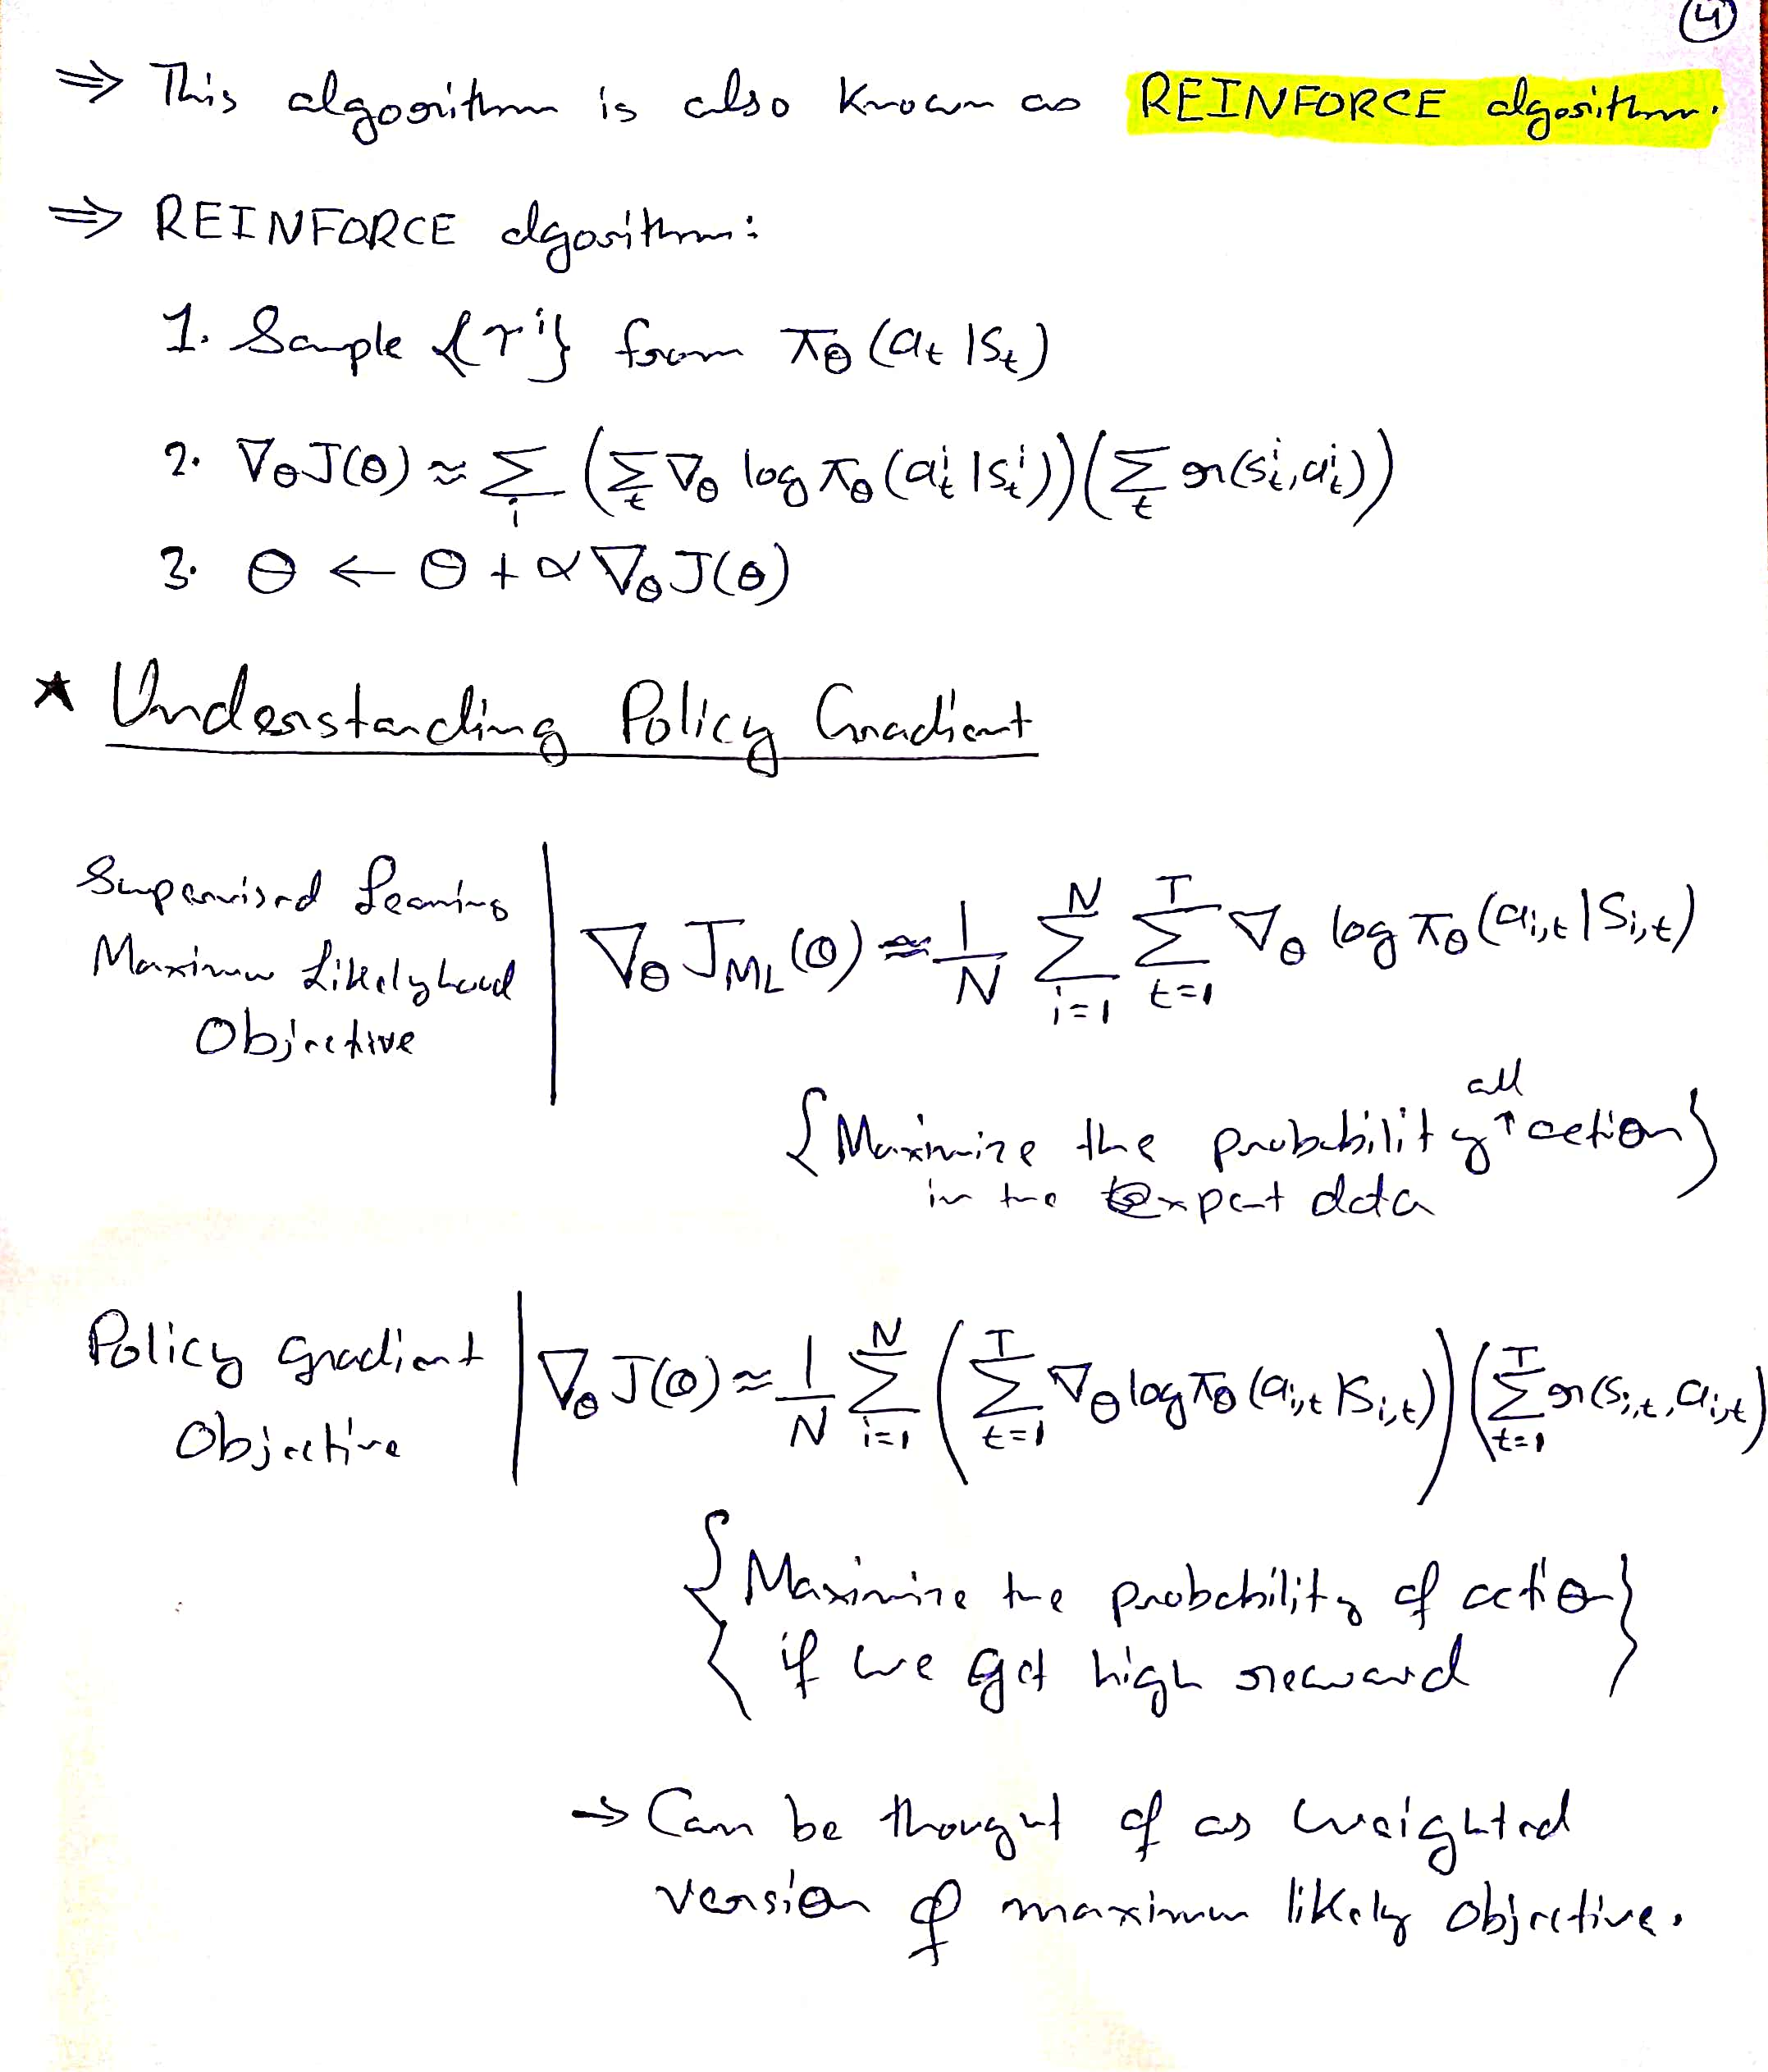 4
⇒ This algorithm is also known as REINFORCE algorithm.
⇒ REINFORCE algorithm:
1. Sample {τ^i} from π_θ(a_t|s_t)
2. ∇_θ J(θ) ≈ Σ_i (Σ_t ∇_θ log π_θ(a_t^i|s_t^i)) (Σ_t r(s_t^i, a_t^i))
3. θ ← θ + α ∇_θ J(θ)
★ Understanding Policy Gradient
Supervised Learning
Maximum Likelyhood
Objective
∇_θ J_ML(θ) ≈ 1/N Σ_{i=1}^N Σ_{t=1}^T ∇_θ log π_θ(a_{i,t}|s_{i,t})
all
{Maximize the probability ↑ action}
in the Expert data
Policy gradient
Objective
∇_θ J(θ) ≈ 1/N Σ_{i=1}^N (Σ_{t=1}^T ∇_θ log π_θ(a_{i,t}|s_{i,t})) (Σ_{t=1}^T r(s_{i,t}, a_{i,t})
{Maximize the probability of action}
if we get high reward
→ Can be thought of as weighted
version of maximum likely objective.